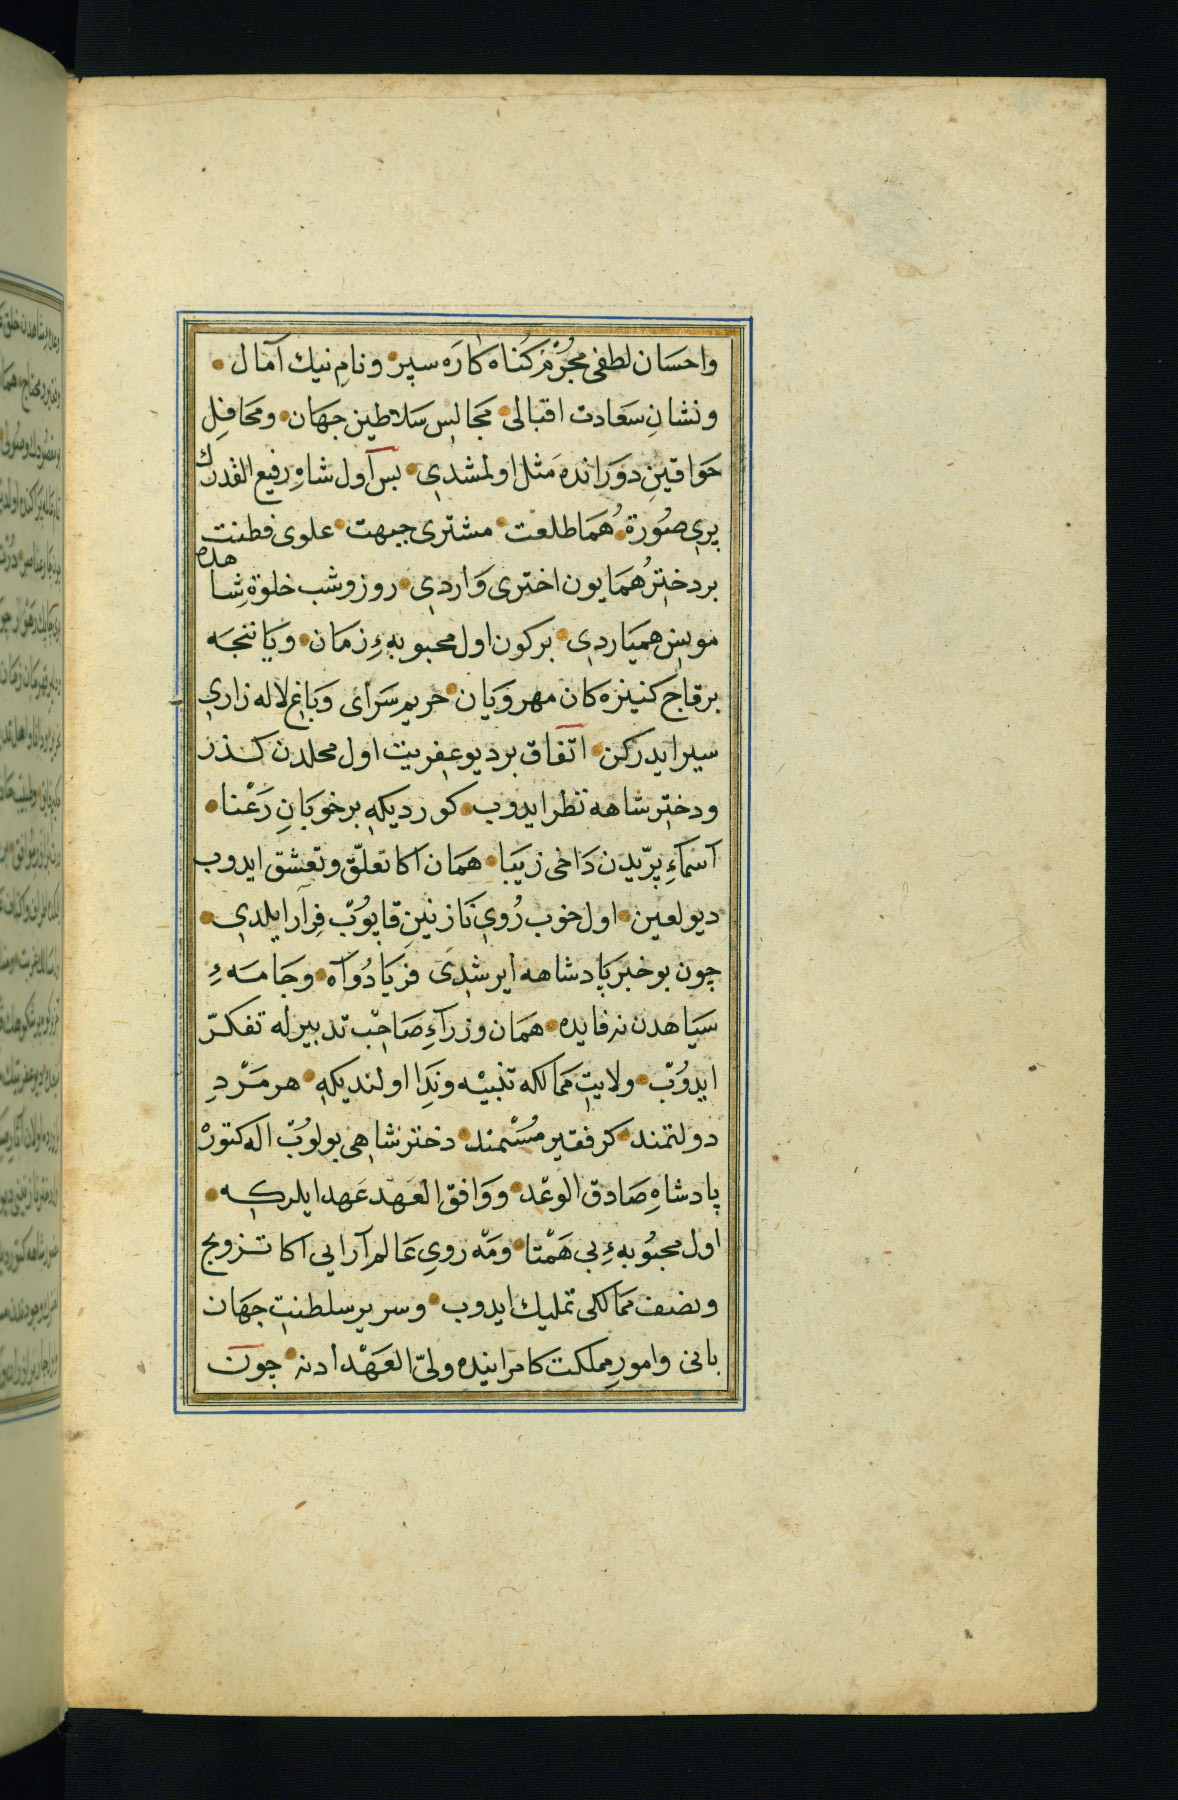 واحسان لطفی مجرم گناه كاره سپر ونام نیك آمال
ونشانِ سعادت اقبالی مجالس سلاطین جهان ومحافلِ
خواقینِ دورانده مثل اولمشدی بس اول شاهِ رفیع القدرك
پری صورة هما طلعت مشتری جبهت علوی فطنت
بر دختر همایون اختری واردی روز وشب خلوة شاهده
مونس همیاردی بركون اول محبوبهءِ زمان ویا نتجه
بر قاج كنیزه كان مهرویان حریم سرای وباغ لاله زاری
سیر ایدركن اتفاق بر دیو عفریت اول محلدن كذر
ودختر شاهه نظر ایدوب كوردیكه بر خوبانِ رعنا
آسماءِ پریدن داخی زیبا همان اكا تعلّق وتعشق ایدوب
دیو لعین اول خوب رُوی نازنینِ قاپوب فرار ایلدی
چون بو خبر پادشاهه ایرشدی فریاد وآه وجامهءِ
سیاهدن نه فایده همان وزرآءِ صاحب تدبیر له تفكّر
ایدوب ولایتِ ممالكه تنبیه وندا اولندیكه هر مردِ
دولتمند كر فقیر مستمند دختر شاهی بولوب اله كتور
پادشاهِ صادق الوعد ووافق العهد عهد ایلركه
اول محبوبهءِ بی همتا ومه رویِ عالم آرایی اكا تزویج
ونصف ممالكی تملیك ایدوب وسریر سلطنتِ جهان
بانی وامورِ مملكت كامرانیده ولیّ العهد ادنه چون